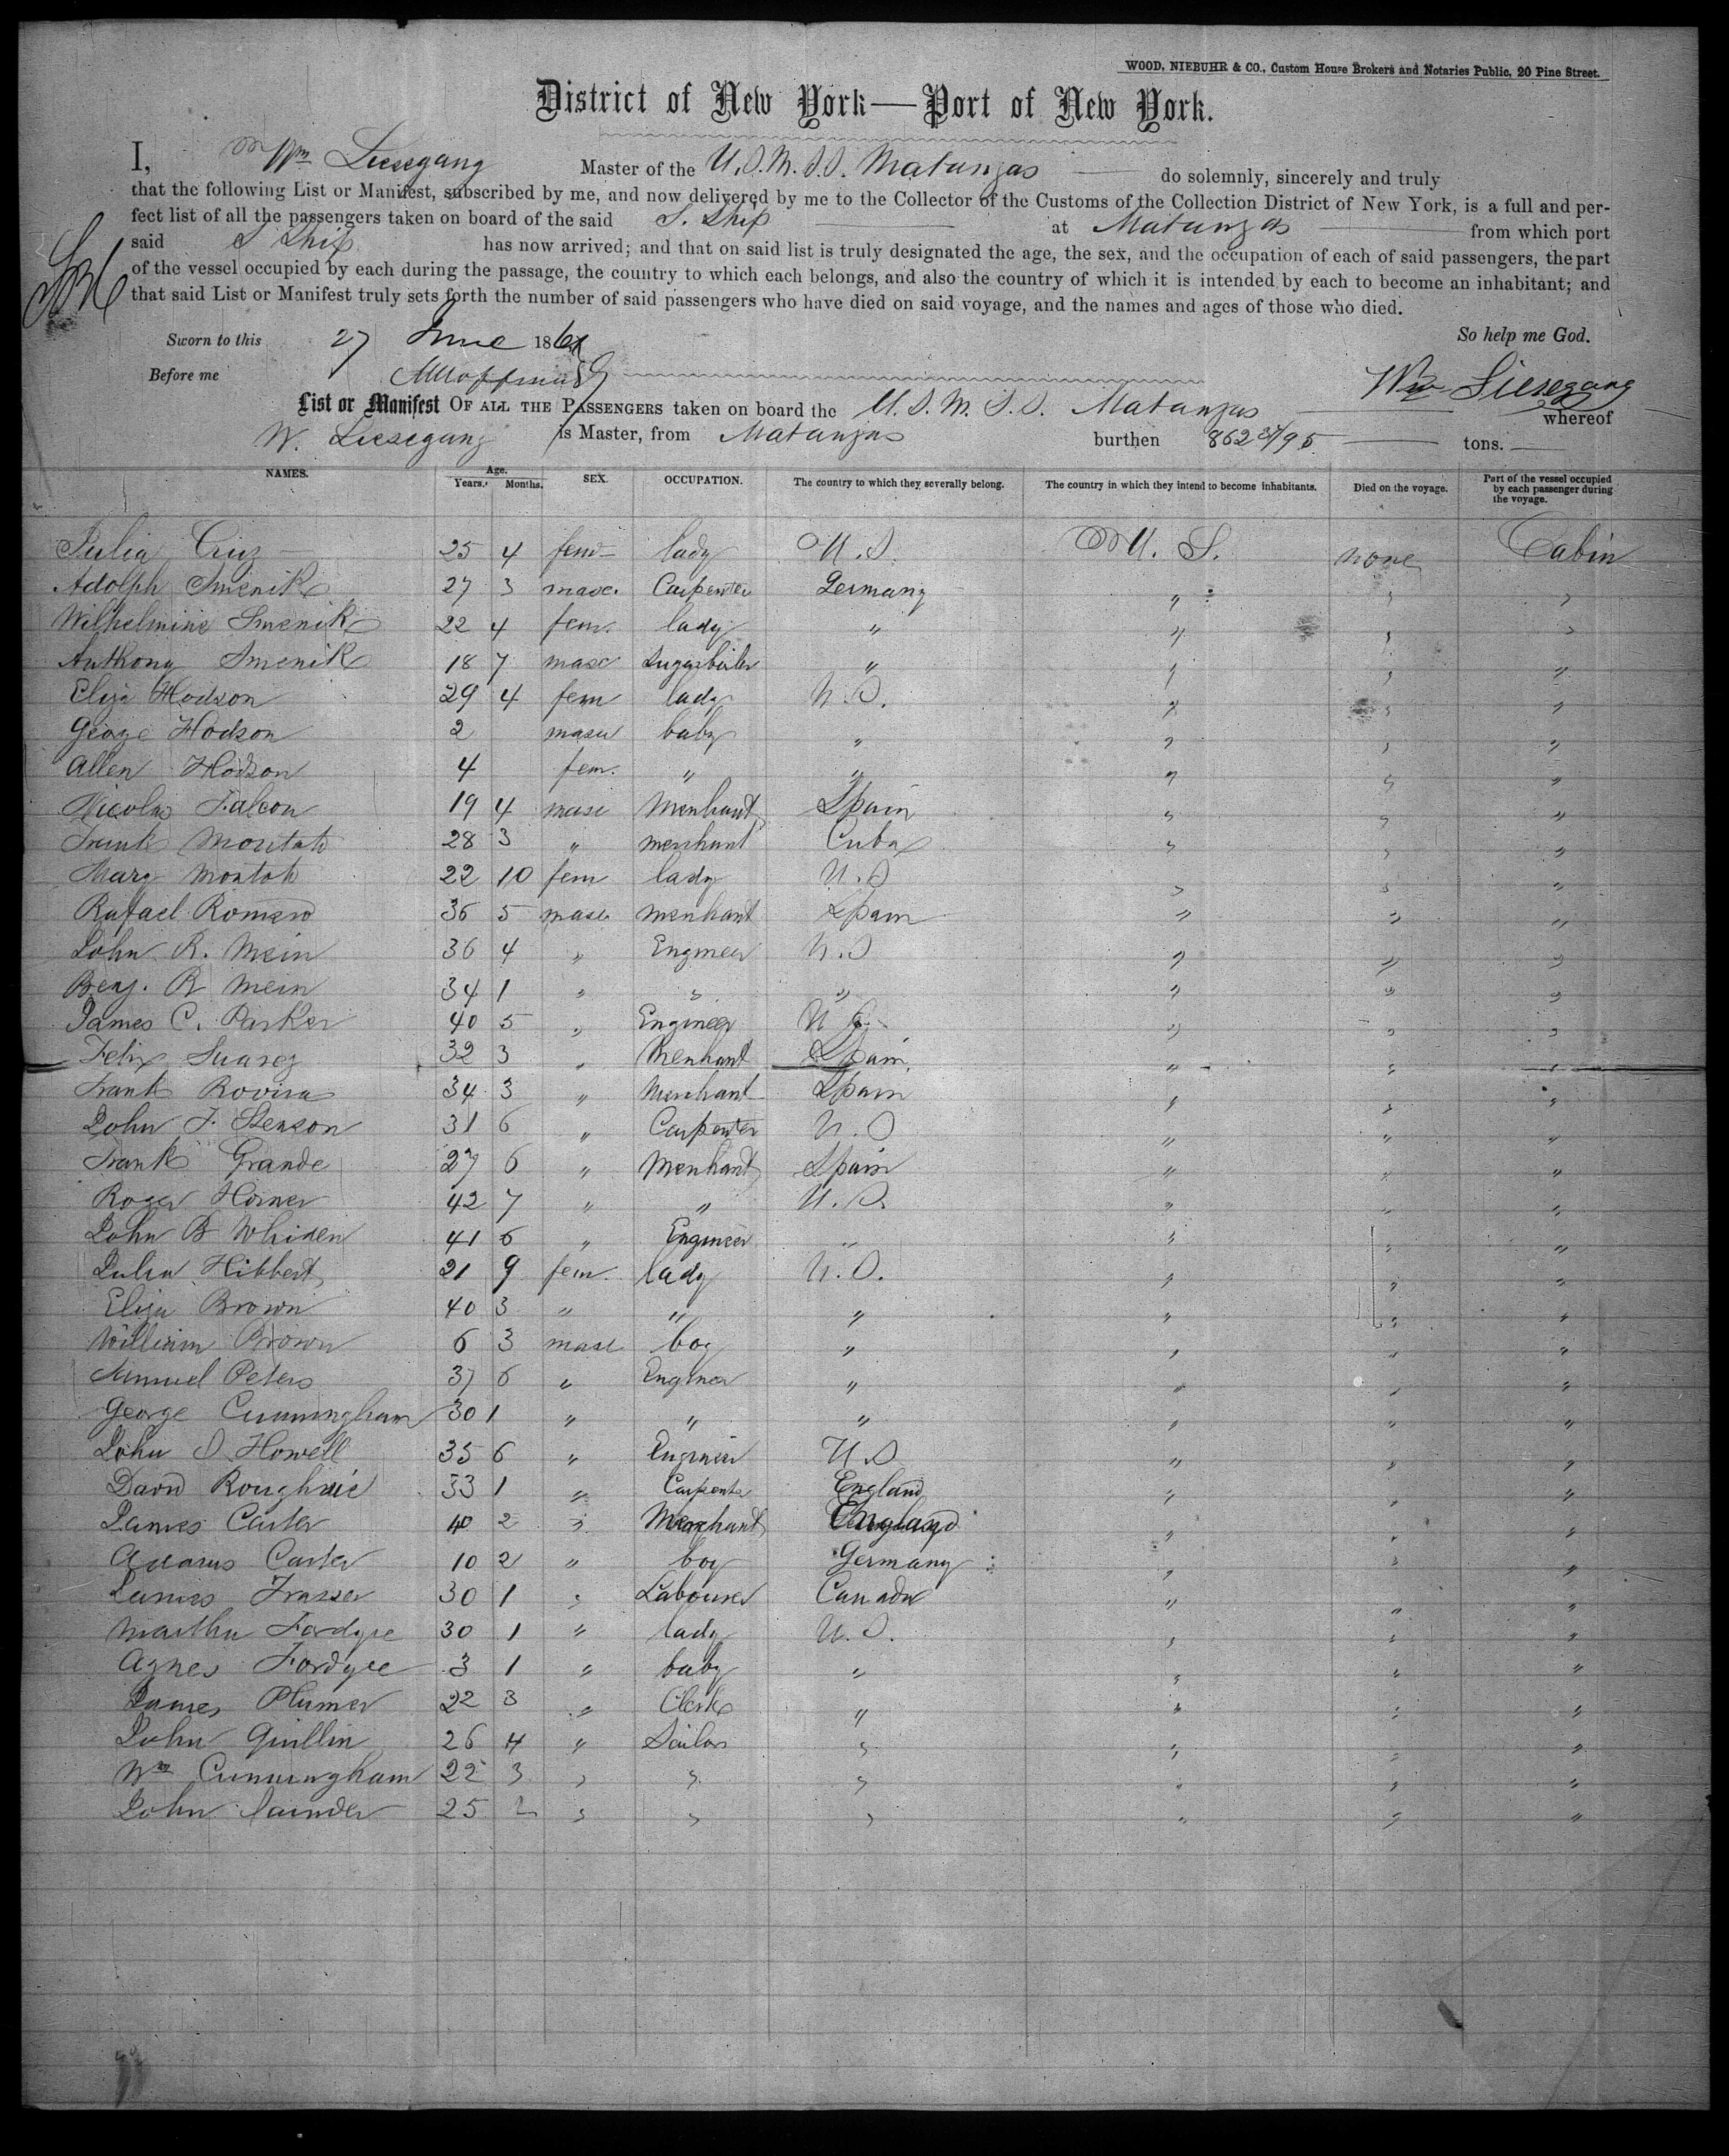 WOOD, NIEBUHR & CO., Custom House Brokers and Notaries Public, 20 Pine Street.
District of New York—Port of New York.
I, Wm Liesegang Master of the U.S.M.S.S. Matanzas do solemnly, sincerely and truly
that the following List or Manifest, subscribed by me, and now delivered by me to the Collector of the Customs of the Collection District of New York, is a full and per-
fect list of all the passengers taken on board of the said S. Ship at Matanzas from which port
said S Ship has now arrived; and that on said list is truly designated the age, the sex, and the occupation of each of said passengers, the part
of the vessel occupied by each during the passage, the country to which each belongs, and also the country of which it is intended by each to become an inhabitant; and
that said List or Manifest truly sets forth the number of said passengers who have died on said voyage, and the names and ages of those who died.
Sworn to this 27 June 186 So help me God.
Before me Wm Liesegang
List or Manifest OF ALL THE PASSENGERS taken on board the U.S.M.S.S. Matanzas whereof
W. Liesegang is Master, from Matanzas burthen 862 /95 tons.
NAMES. Age. Years. Months. SEX. OCCUPATION. The country to which they severally belong. The country in which they intend to become inhabitants. Died on the voyage. Part of the vessel occupied by each passenger during the voyage.
Julia Cruz 25 4 fem lady U.S. U.S. none Cabin
Adolph Smenik 27 3 masc. Carpenter Germany " " "
Wilhelmine Smenik 22 4 fem. lady " " " "
Anthony Smenik 18 7 masc Sugarboiler " " " "
Eliza Hodson 29 4 fem lady U.S. " " "
George Hodson 2 masc baby " " " "
Allen Hodson 4 fem. " " " " "
Nicolas Falcon 19 4 masc Merchant Spain " " "
Frank Montato 28 3 " merchant Cuba " " "
Mary Montato 22 10 fem lady U.S " " "
Rafael Romero 36 5 masc merchant Spain " " "
John R. Mein 36 4 " Engineer U.S " " "
Benj. R Mein 34 1 " " " " " "
James C. Parker 40 5 " Engineer U S " " "
Felix Suarez 32 3 " Merchant Spain " " "
Frank Rovira 34 3 " Merchant Spain " " "
John F. Stenson 31 6 " Carpenter U.S " " "
Frank Grande 27 6 " Merchant Spain " " "
Roger Horner 42 7 " " U.S. " " "
John B Whiden 41 6 " Engineer " " " "
Julia Hibbert 21 9 fem. lady U.S. " " "
Eliza Brown 40 3 " " " " " "
William Brown 6 3 masc boy " " " "
Samuel Peters 37 6 " Engineer " " " "
George Cunningham 30 1 " " " " " "
John S Howell 35 6 " Engineer U.S " " "
David 33 1 " Carpenter England " " "
James Carter 40 2 " Merchant England " " "
Carter 10 2 " boy Germany " " "
James Frasser 30 1 " Labourer Canada " " "
Martha Fordyce 30 1 " lady U.S. " " "
Agnes Fordyce 3 1 " baby " " " "
James Plumer 22 3 " Clerk " " " "
John Quillin 26 4 " Sailor " " " "
Wm Cunningham 22 3 " " " " " "
John 25 2 " " " " " "